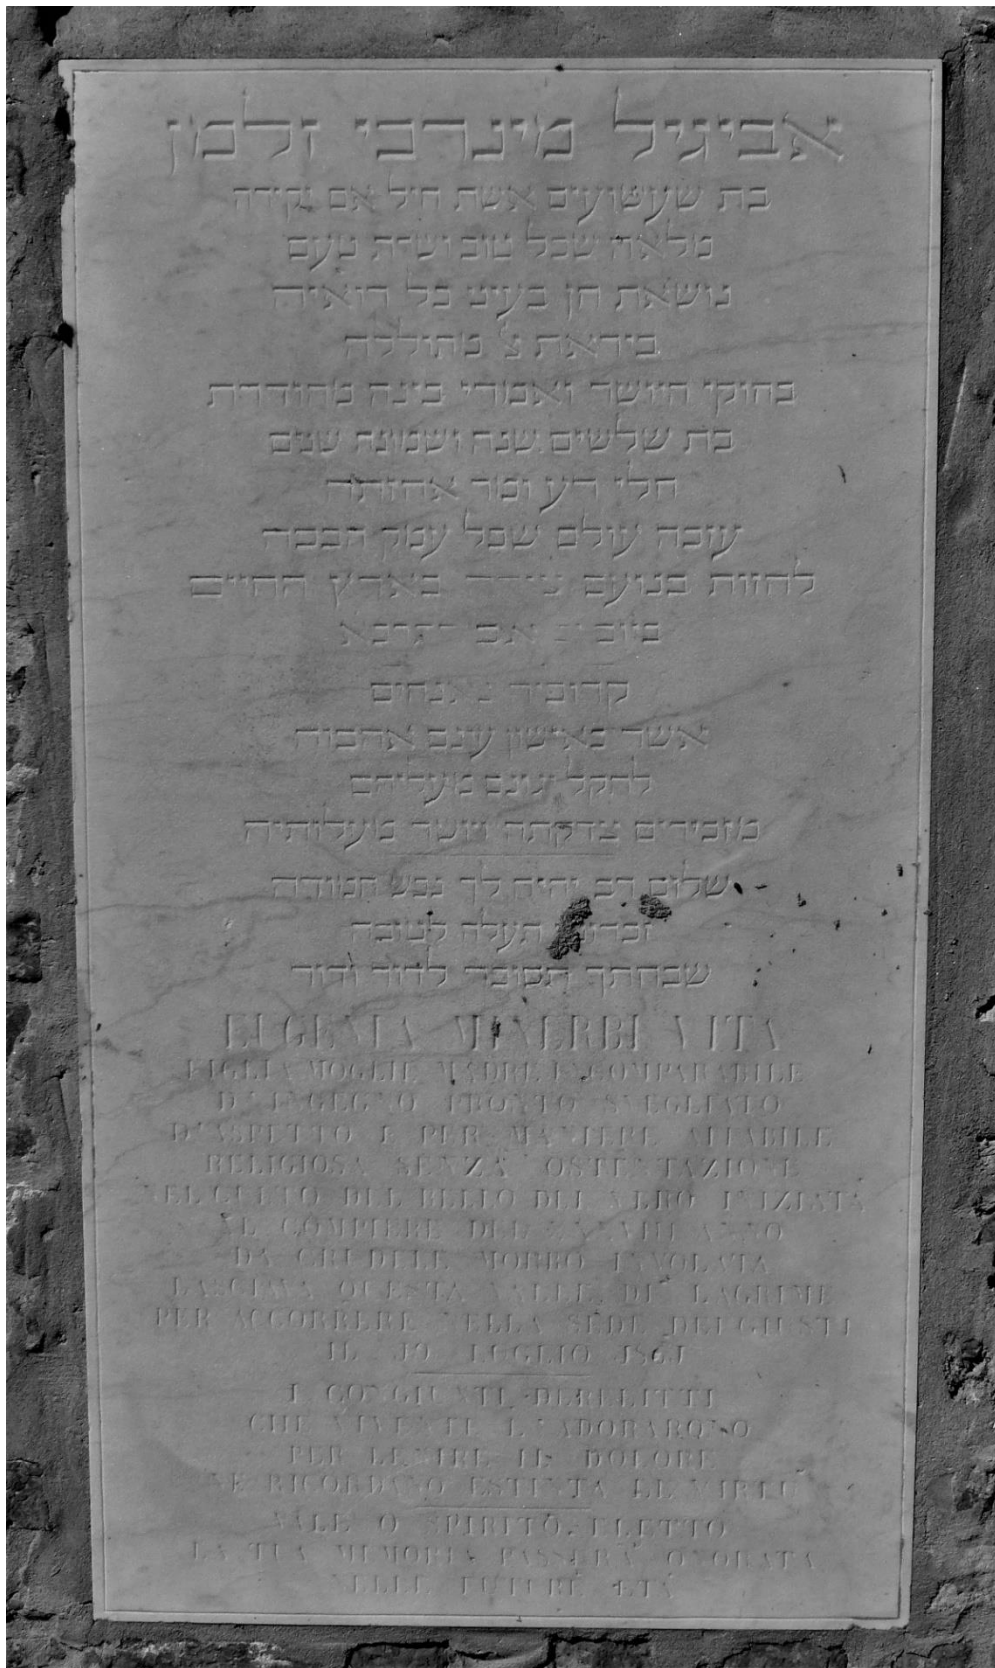 אביגיל מינרבי זלמן
בת שעשועים אשת חיל אם יקירה
מלאה שכל טוב ושית טעם
נושאת חן בעיני כל רואיה
ביראת צ מהוללה
בחוקי היושר ואמרי בינה מהודרת
בת שלשים שנה ושמונה שנים
חלי רע ומר אחזתה
עזבה עולם שכל עמק הבכה
לחזות בנועם בארץ החיים
קרוביה נאנחים
אשר כאישון עינם אהבוה
להקל יגונם מעליהם
מזכירים צדקתה ויושר מעלותיה
שלום רב יהיה לך נפש חמודה
תעלה לטובה
שבחתך תסופר לדור ודור
EUGENIA MINERBI VITA
FIGLIA MOGLIE MADRE INCOMPARABILE
D'INGEGNO PRONTO SVEGLIATO
D'ASPETTO E PER MANIERE AFFABILE
RELIGIOSA SENZA OSTENTAZIONE
NEL CULTO DEL BELLO DEL VERO INIZIATA
AL COMPIERE DEL XXXVIII ANNO
DA CRUDELE MORBO INVOLATA
LASCIAVA QUESTA VALLE DI LAGRIME
PER ACCORRERE NELLA SEDE DEI GIUSTI
IL LUGLIO 1861
I CONGIUNTI DERELITTI
CHE VIVENTE L'ADORARONO
PER LENIRE IL DOLORE
NE RICORDANO ESTINTA LE VIRTU
VALE O SPIRITO ELETTO
LA TUA MEMORIA PASSERA ONORATA
NELLE FUTURE ETA